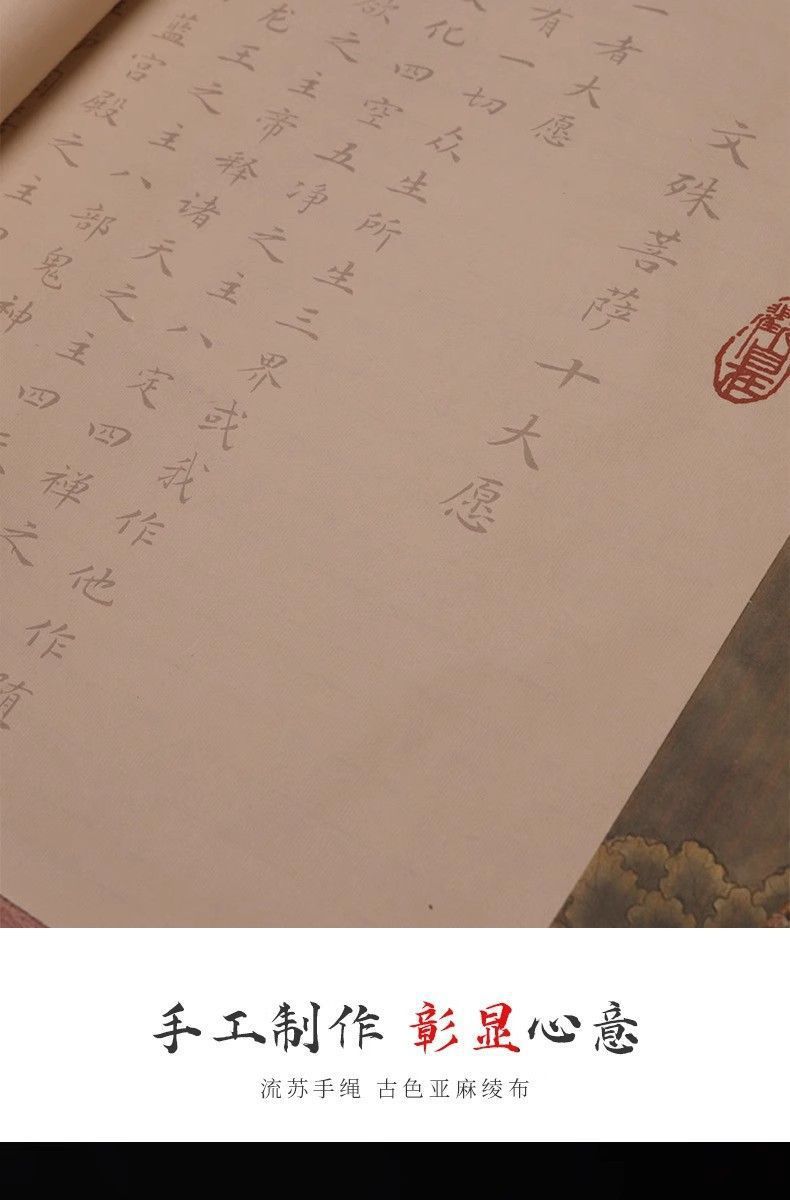 文殊菩萨十大愿
一者大愿
有一切众生所生三界或我作他作随
化四空五净之主八定四禅之
欲之主帝释诸天之主四
龙王之主八部鬼神
蓝宫殿之主
觀自在
手工制作 彰显心意
流苏手绳 古色亚麻绫布